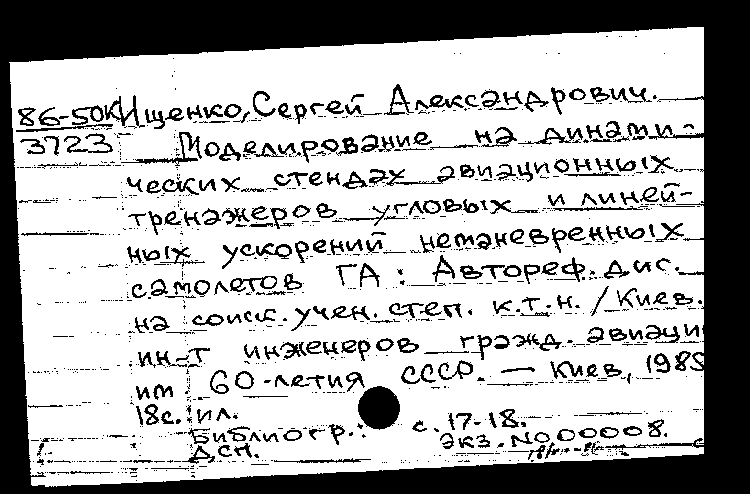 86-50К Ищенко, Сергей Александрович.
3723 Моделирование на динами-
ческих стендах авиационных
тренажеров угловых и линей-
ных ускорений неманевренных
самолетов ГА: Автореф. дис.
на соиск. учен. степ. к.т.н. / Киев.
ин-т инженеров гражд. авиации
им 60-летия СССР. — Киев, 1985
18с. ил.
Библиогр.: с. 17-18.
Дсп. Экз. No 00008.